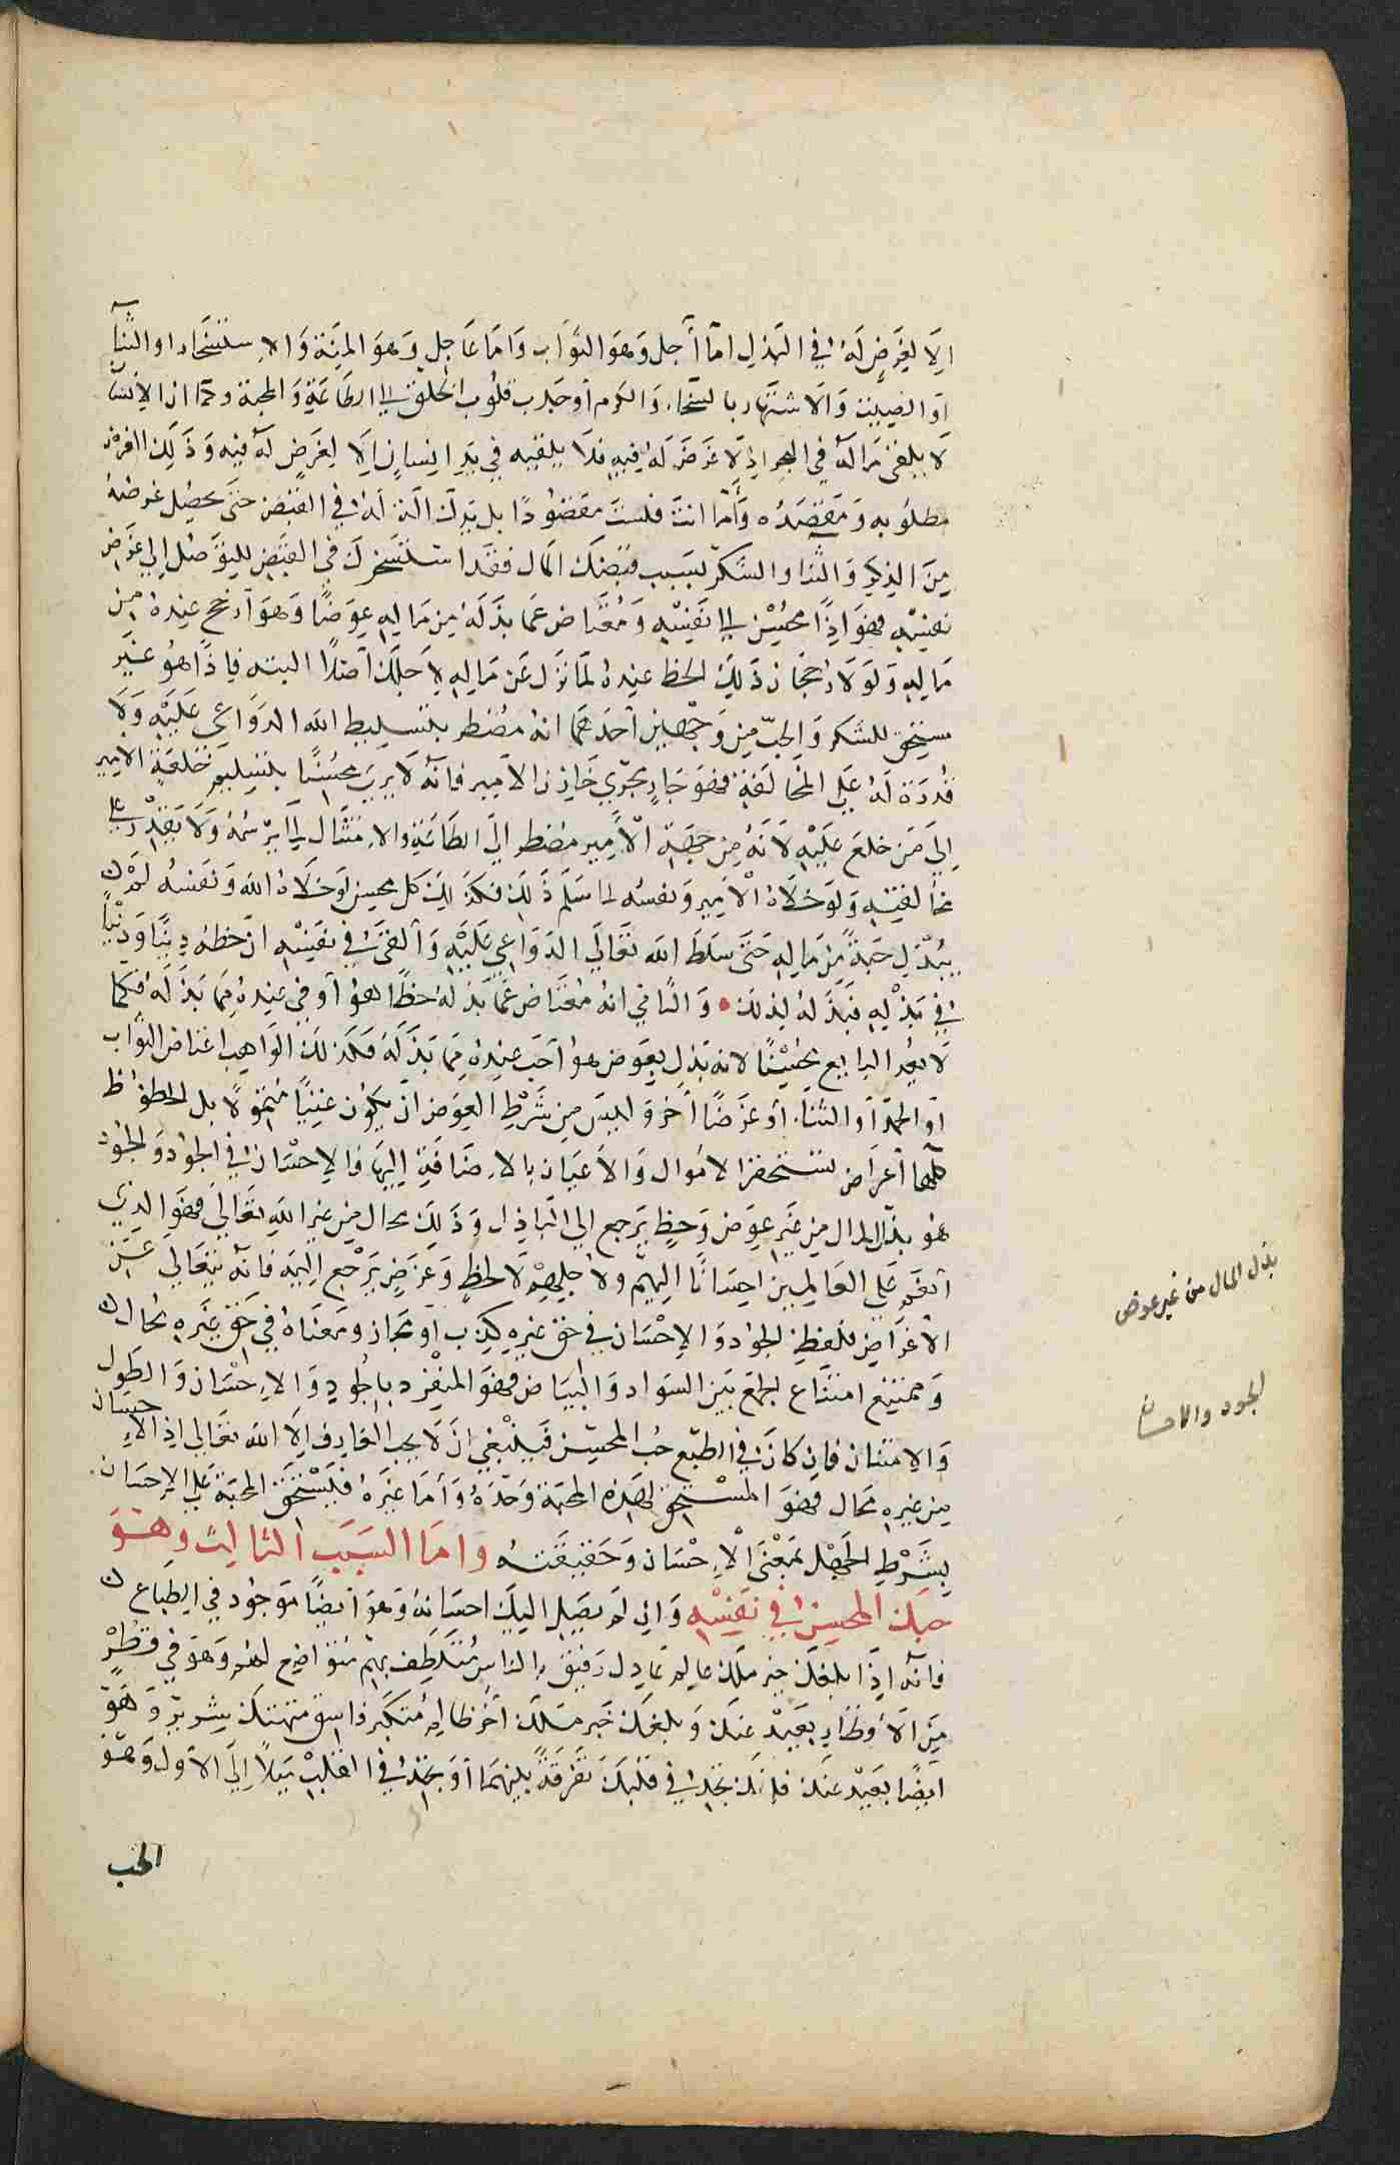 الا لغرض له في البذل اما آجل وهو الثواب واما عاجل وهو المنة والاستسخار او الثناء
او الصيت والاشتهار بالسخاء والكرم او جذب قلوب الخلق الى الطاعة والمحبة وكما ان الانسان
لا يلقى ماله في البحر اذ لا غرض له فيه فلا يلقيه في يد انسان الا لغرض له فيه وذلك الغرض
مطلوبه ومقصده وأما انت فلست مقصودا بل يدك آلة له في القبض حتى يحصل غرضه
من الذكر والثناء والشكر بسبب قبضك المال فقد استسخرك في القبض للتوصل الى غرض
نفسه فهو اذا محسن الى نفسه ومعتاض عما بذله من ماله عوضا وهو أرجح عنده من
ماله ولولا رجحان ذلك الحظ عنده لما نزل عن ماله لاجلك أصلا البته فاذا هو غير
مستحق للشكر والحب من وجهين أحدهما انه مضطر بتسليط الله الدواعي عليه ولا
قدرة له على المخالفة فهو جار مجرى خازن الأمير فانه لا يرى محسنا بتسليم خلعة الامير
إلى من خلع عليه لأنه من جهة الأمير مضطر إلى الطاعة والامتثال لما يرسمه ولا يقدر على
مخالفته ولو خلاه الأمير ونفسه لما سلم ذلك فكذلك كل محسن لو خلاه الله ونفسه لم
يبذل حبة من ماله حتى سلط الله تعالى الدواعي عليه وألقى في نفسه ان حظه دينا ودنيا
في بذله فبذله لذلك • والثاني انه معتاض عما بذله حظا هو أوفى عنده مما بذله فكما
لا يعد البايع محسنا لانه بذل بعوض هو أحب عنده مما بذله فكذلك الواهب اعتاض الثواب
او الحمد أو الثناء أو عوضا أخر وليس من شرط العوض ان يكون عينا متمولا بل الحظوظ
كلها أعراض تستحقر الاموال والأعيان بالاضافة إليها فالإحسان في الجود والجود
هو بذل المال من غير عوض وحظ يرجع الى الباذل وذلك محال من غير الله تعالى فهو الذي
انعم على العالمين احسانا اليهم ولأجلهم لا لحظ وغرض يرجع إليه فانه يتعالى عن
الأغراض فلفظ الجود والإحسان في حق غيره كذب أو مجاز ومعناه في حق غيره محال
وممتنع امتناع الجمع بين السواد والبياض فهو المنفرد بالجود والإحسان والطول
والامتنان فان كان في الطبع حب المحسن فينبغي ان لا يحب العارف الا الله تعالى اذ الاحسان
من غيره محال فهو المستحق لهذه المحبة وحده وأما غيره فيستحق المحبة على الإحسان
بشرط الجهل بمعنى الإحسان وحقيقته واما السبب الثالث وهو
حبك المحسن في نفسه وان لم يصل اليك احسانه وهو أيضا موجود في الطباع
فانه اذا بلغك خبر ملك عالم عادل رفيق بالناس متلطف بهم متواضع لهم وهو في قطر
من الأقطار بعيد عنك وبلغك خبر ملك آخر ظالم متكبر فاسق متهتك شرير وهو
ايضا بعيد عنك فانك تجد في قلبك تفرقة بينهما أو تجد في القلب ميلا إلى الأول وهو
الحب
بذل المال من غير عوض
الجود والاحسان